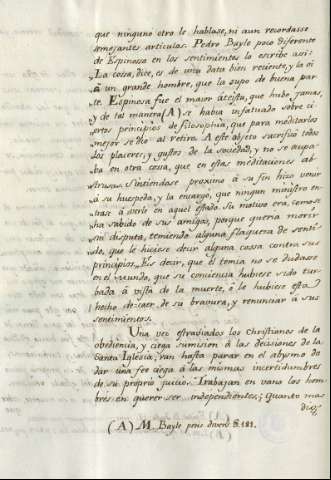 que ninguno otro le hablase, ni aun recordasse
semejantes articulos. Pedro Bayle poco diferente
de Espinosa en los sentimientos lo escribe asi:
„La cosa, dice, es de una data bien reciente, y la oi
à un grande hombre, que la supo de buena par-
te. Espinosa fue el maior ateista, que hubo jamas,
y de tal manera (A) se habia infatuado sobre ci-
ertos principios de filosophia, que para meditarlos
mejor se dio al retiro. A este objeto sacrifico todos
los placeres, y gustos de la sociedad, y no se ocupa-
ba en otra cosa, que en estas meditaciones abs-
trusas. Sintiendose proximo à su fin hizo venir
à su huespeda, y la encargo, que ningun ministro en-
trase à verle en aquel estado. Su motivo era, como se
ha sabido de sus amigos, porque queria morir
sin disputa, temiendo alguna flaqueza de senti-
do, que le hiciese decir alguna cosa contra sus
principios„. Es decir, que el temia no se dudase
en el mundo, que su conciencia hubiese sido tur-
bada à vista de la muerte, ò le hubiese esta
hecho decaer de su bravura, y renunciar à sus
sentimientos.
Una vez estraviados los Christianos de la
obediencia, y ciega sumision à las decisiones de la
Santa Iglesia, van hasta parar en el abysmo de
dar una fee ciega à las mismas incertidumbres
de su proprio juicio. Trabajan en vano los hom-
bres en querer ser independientes; Quanto mas
(A) M. Bayle pens. divers. §. 181.